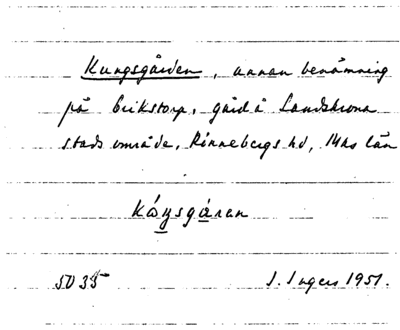 Kungsgården, annan benämning
på Erikstorp, gård å Landskrona
stads område, Rönnebergs hd, Mhs län
kåŋsgáren
5035 I. Ingers 1951.